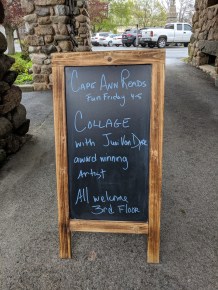 Cape Ann Reads
Fun Friday 4-5
Collage
with Jun Van Dyke
award winning
Artist
All welcome
3rd Floor